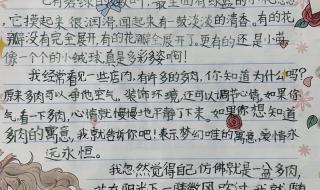 它摸起来很润滑,闻起来有一股淡淡的清香。有的花
瓣没有完全展开,有的花瓣全展开了,更有的还是小花
像一个个的小绒球,真是多彩多姿啊!
我经常看见一些店内,有许多的多肉,你知道为什么吗?
原来多肉可以净他空气,装饰环境,还可以调节心情。如果你
气,看一下多肉,心情就慢慢地平静了下来。如果你想知道
多肉的寓意,我就告诉你吧!表示梦幻,唯的寓意,爱情永
远永恒。
我忽然觉得自己仿佛就是一盆多肉,